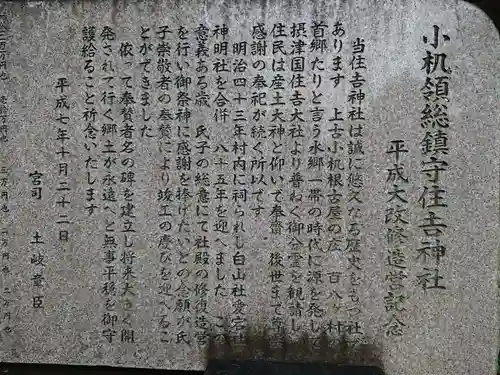 小机領総鎮守住吉神社
平成大改修造営記念
当住吉神社は誠に悠久なる歴史をもつ社で
あります 上古小机根古屋の庄 百八ヶ村
首郷たりと言う水郷一帯の時代に源を発して
摂津国住吉大社より普ねく御分霊を観請し
住民は産土大神と仰いて奉齋 後世まで
感謝の奉祀が続く所以です
明治四十三年村内に祠られし白山社愛宕社
神明社を合併 八十五年を迎へました この
意義ある歳 氏子の総意にて社殿の修復造営
を行い御祭神に感謝を捧げたいとの念願が氏
子崇敬者の奉賛により竣工の慶びを迎へるこ
とができました
依って奉賛者名の碑を建立し将来大きく開
発されて行く郷土が永遠へと無事平穏を御守
護給ること祈念いたします
平成七年十月二十二日
宮司 土岐章臣